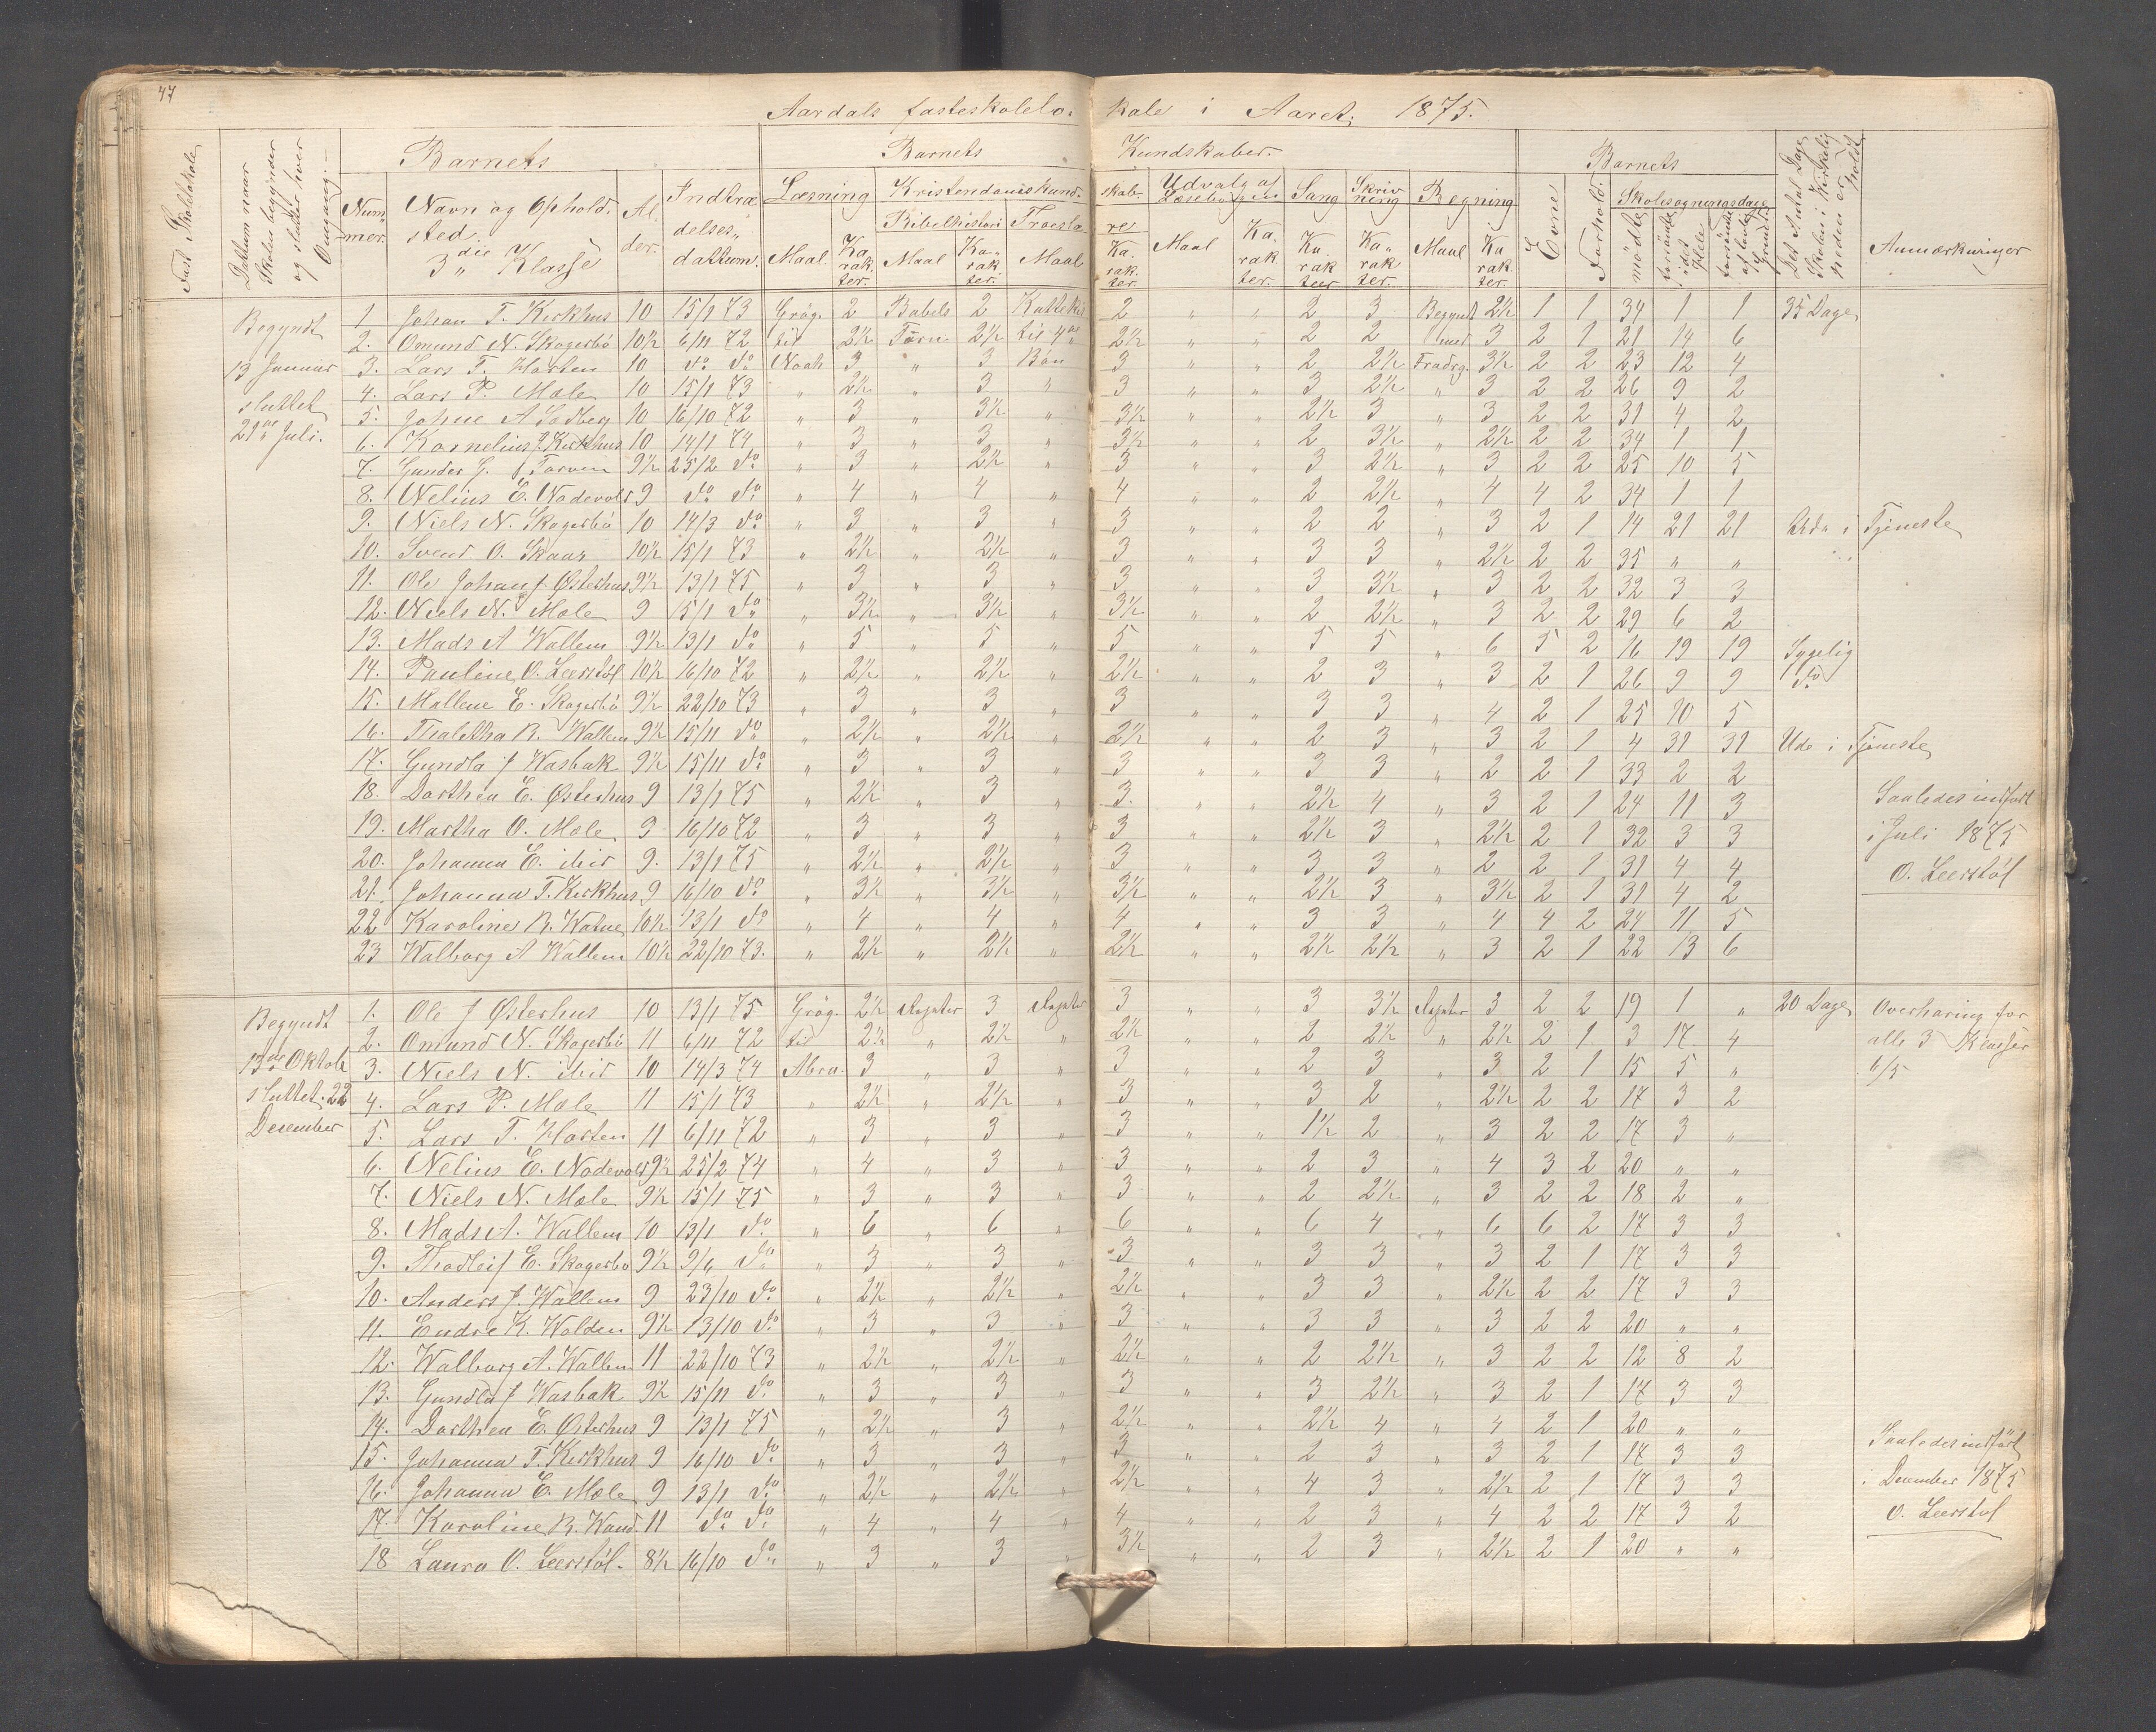 47
Aardals fasteskolelo- kale i Aaret 1875.
Fast Skolelokale
Datum naar Skolen begynder og slutter hver Omgang.
Barnets
Barnets Kundskaber.
Barnets
Det Antal Dage Skolen i Virkelig heden er holdt
Anmærkninger
Nummer.
Navn og Opholdssted. 3die Klasse
Alder.
Indtrædelses-dattum.
Læsning
Kristendomskundskab.
Udvalg af Læsebogen
Sang
Skrivning
Regning
Evne
Forhold.
Skolesøgningsdage
Bibelhistori
Troeslære
Maal
Karakter.
mødte
forsømte i det Hele
forsømte af lovlig Grund
Begyndt 13 Januar sluttet 21de Juli.
1. Johan T. Kirkhus 10 15/1 73 Grög. 2 Babels 2 Katteki 2 " " 2 3 Begyndt 2½ 1 1 34 1 1 35 Dage
2. Omund N. Skogerbö 10½ 6/11 72 til 2½ Tårn 2½ til 4de 2½ " " 2 2 med 3 2 1 21 14 6
3. Lars T. Horten 10 do do Noah 3 " 3 Bön 3 " " 2 2½ Fradrg. 3½ 2 2 23 12 4
4. Lars P. Mæle 10 15/1 73 " 2½ " 3 " 3 " " 3 2½ " 3 2 2 26 9 2
5. Johne A Sedberg 10 16/10 72 " 3 " 3½ " 3½ " " 2½ 3 " 3 2 2 31 4 2
6. Kornelius J. Kirkhus 10 14/1 74 " 3 " 3 " 3½ " " 2 3½ " 2½ 2 2 34 1 1
7. Gunder G. Torven 9½ 25/2 do " 3 " 2½ " 3 " " 3 2½ " 3 2 2 25 10 5
8. Nelius E. Nodevold 9 do do " 4 " 4 " 4 " " 2 2½ " 4 4 2 34 1 1
9. Niels N. Skogerbö 10 14/3 do " 3 " 3 " 3 " " 2 2 " 3 2 1 14 21 21 Ude i Tjeneste
10. Svend O. Skaar 10½ 15/1 73 " 2½ " 2½ " 3 " " 3 3 " 2½ 2 2 35 " "
11. Ole Johan J. Østerhus 9½ 13/1 75 " 3 " 3 " 3 " " 3 3½ " 3 2 2 32 3 3
12. Niels N. Mæle 9 15/1 do " 3½ " 3½ " 3½ " " 2 2½ " 3 2 2 29 6 2
13. Mads A Wallem 9½ 13/1 do " 5 " 5 " 5 " " 5 5 " 6 5 2 16 19 19 Sygelig
14. Pauline O. Leerstöl 10½ 16/10 72 " 2½ " 2½ " 2½ " " 2 3 " 3 2 1 26 9 9 do
15. Mallene E. Skogerbö 9½ 22/10 73 " 3 " 3 " 3 " " 3 3 " 4 2 1 25 10 5
16. Thaletha R. Wallem 9½ 15/11 do " 2½ " 2½ " 2½ " " 2 3 " 3 2 1 4 31 31 Ude i Tjeneste
17. Gundla J Wasbak 9½ 15/11 do " 3 " 3 " 3 " " 3 3 " 2 2 1 33 2 2
18. Dorthea E. Østerhus 9 13/1 75 " 2½ " 3 " 3. " " 2½ 4 " 3 2 1 24 11 3
19. Martha O. Mæle 9 16/10 72 " 3 " 3 " 3 " " 2½ 3 " 2½ 2 1 32 3 3
20. Johanna E. ibid 9. 13/1 75 " 2½ " 2½ " 3 " " 3 3 " 2 2 1 31 4 4
21. Johanna T. Kirkhus 9 16/10 do " 3½ " 3½ " 3½ " " 2½ 3 " 3½ 2 1 31 4 2
22 Karoline R. Watne 10½ 13/1 do " 4 " 4 " 4 " " 3 3 " 4 4 2 24 11 5
23 Walborg A Wallem 10½ 22/10 73. " 2½ " 2½ " 2½ " " 2½ 2½ " 3 2 1 22 13 6
Saaledes indført
i Juli 1875
O. Leerstöl
Begyndt 13de Oktob sluttet 22 December
1. Ole J Østerhus 10 13/1 75 Grög. 2½ Repeter 3 Repeter 3 " " 3 3½ Repeter 3 2 2 19 1 " 20 Dage
2. Omund N. Skogerbö 11 6/11 72 til 2½ " 2½ " 2½ " " 2 2½ " 2½ 2 1 3 17 4
3. Niels N. ibid 10 14/3 74 Abra. 3 " 3 " 3 " " 2 3 " 3 2 1 15 5 "
4. Lars P. Mæle 11 15/1 73 " 2½ " 2½ " 3 " " 3 2 " 2½ 2 2 17 3 2
5. Lars T. Horten 11 6/11 72 " 3 " 3 " 3 " " 1½ 2 " 3 2 2 17 3 "
6. Nelius E. Nodevold 9½ 25/2 74 " 4 " 3 " 3 " " 2 3 " 4 3 2 20 " "
7. Niels N. Mæle 9½ 15/1 75 " 3 " 3 " 3 " " 2 2½ " 3 2 2 18 2 "
8. Mads A. Wallem 10 13/1 do " 6 " 6 " 6 " " 6 4 " 6 6 2 17 3 3
9. Thorleif E. Skogerbö 9½ 9/6 do " 3 " 3 " 3 " " 3 3 " 3 2 1 17 3 3
10. Anders J. Wallem 9 23/10 do " 2½ " 2½ " 2½ " " 3 3 " 2½ 2 2 17 3 3
11. Endre K. Wolden 9½ 13/10 do " 3 " 3 " 3 " " 3 3 " 3 2 2 20 " "
12. Walborg A. Wallem 11 22/10 73 " 2½ " 2½ " 2½ " " 2 2½ " 3 2 2 12 8 2
13. Gundla J Wasbak 9½ 15/11 do " 3 " 3 " 3 " " 3 2½ " 3 2 1 17 3 3
14. Dorthea E. Østerhus 9 13/1 75 " 2½ " 3 " 2½ " " 2½ 4 " 4 2 1 20 " "
15. Johanna T. Kirkhus 9 16/10 do " 3 " 3 " 3 " " 2 3 " 3 2 1 17 3 3
16. Johanna E. Mæle 9 13/1 do " 2½ " 2½ " 2½ " " 4 3 " 2½ 2 1 17 3 3
17. Karoline R. Wand. 11 do do " 4 " 4 " 4 " " 2 3 " 4 2 2 17 3 2
18 Laura O. Leerstöl. 8½ 16/10 do " 3 " 3 " 3½ " " 2 3 " 2½ 2 1 20 " "
Overhøring for
alle 3 Klasser
6/5
Saaledes indført
i December 1875
O. Leerstöl